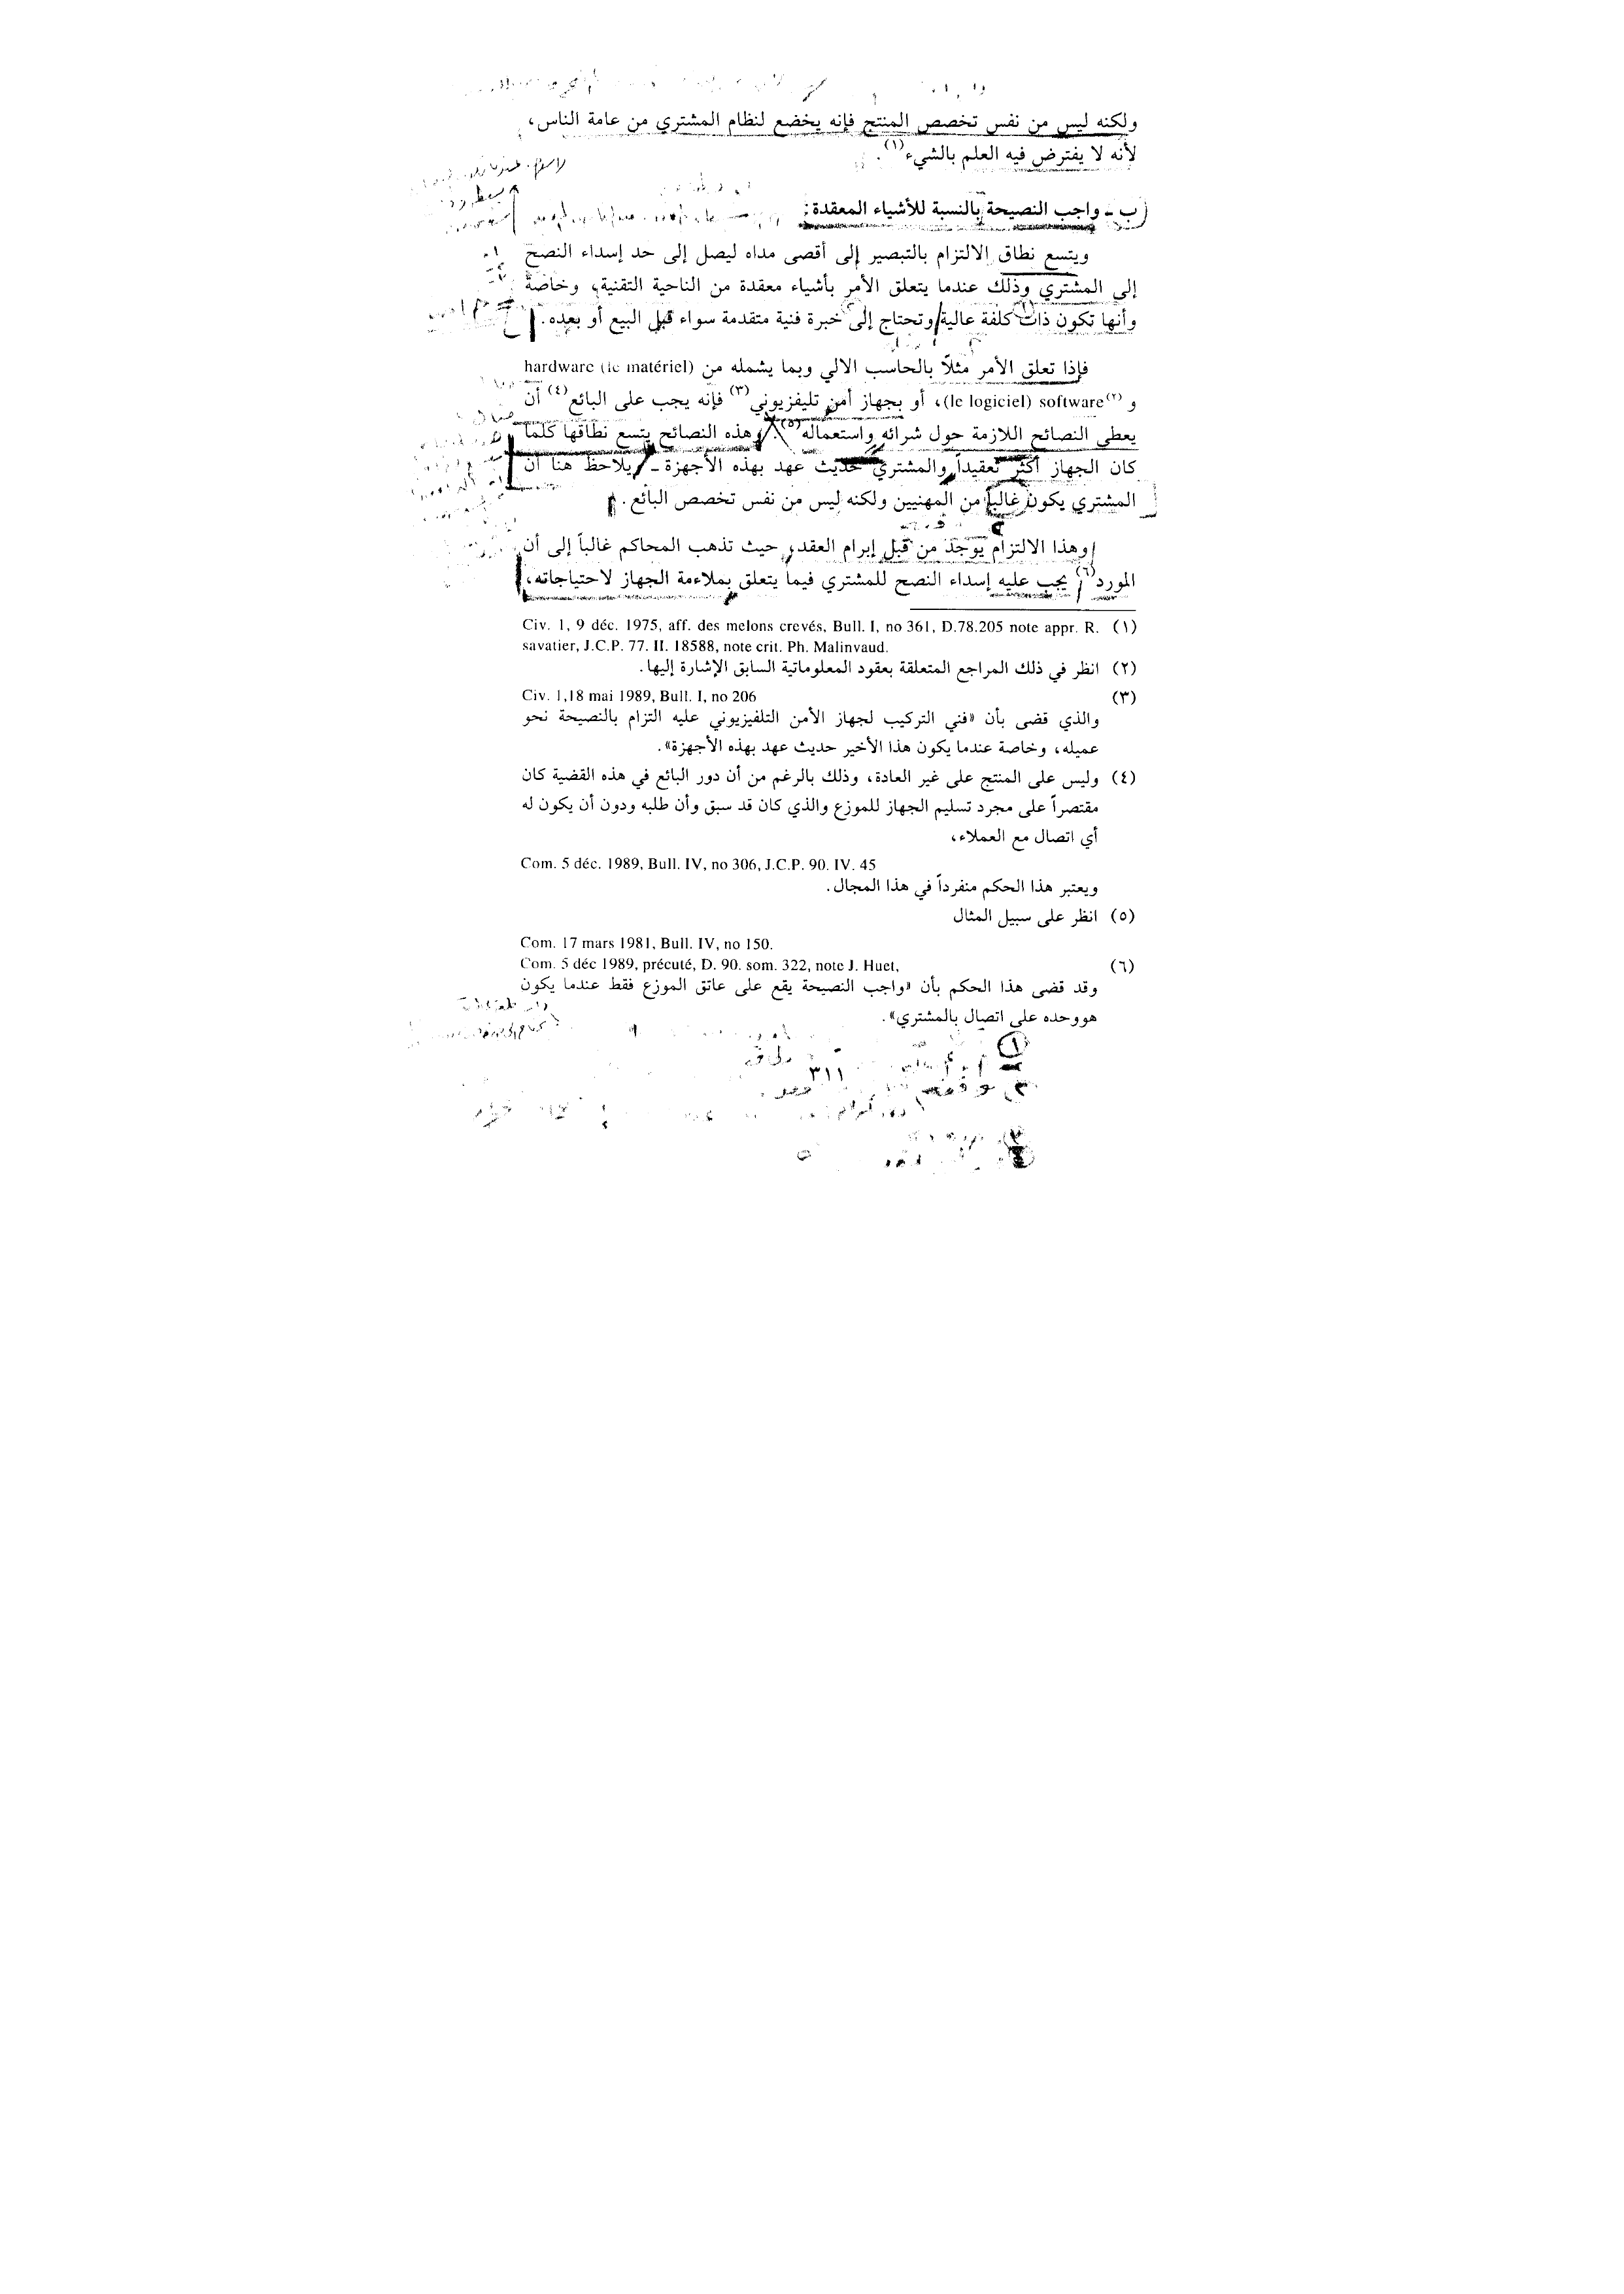 ولكنه ليس من نفس تخصص المنتج فإنه يخضع لنظام المشتري من عامة الناس،
لأنه لا يفترض فيه العلم بالشيء(١).
ب ـ واجب النصيحة بالنسبة للأشياء المعقدة:
ويتسع نطاق الالتزام بالتبصير إلى أقصى مداه ليصل إلى حد إسداء النصح
إلى المشتري وذلك عندما يتعلق الأمر بأشياء معقدة من الناحية التقنية، وخاصة
وأنها تكون ذات كلفة عالية وتحتاج إلى خبرة فنية متقدمة سواء قبل البيع أو بعده.
فإذا تعلق الأمر مثلاً بالحاسب الالي وبما يشمله من hardware (le matériel)
و software(٢) (le logiciel)، أو بجهاز أمن تليفزيوني(٣) فإنه يجب على البائع(٤) أن
يعطي النصائح اللازمة حول شرائه واستعماله(٥). وهذه النصائح يتسع نطاقها كلما
كان الجهاز أكثر تعقيداً والمشتري حديث عهد بهذه الأجهزة ـ ويلاحظ هنا أن
المشتري يكون غالباً من المهنيين ولكنه ليس من نفس تخصص البائع.
وهذا الالتزام يوجد من قبل إبرام العقد، حيث تذهب المحاكم غالباً إلى أن
المورد(٦) يجب عليه إسداء النصح للمشتري فيما يتعلق بملاءمة الجهاز لاحتياجاته،
(١) Civ. 1, 9 déc. 1975, aff. des melons crevés, Bull. I, no 361, D.78.205 note appr. R.
savatier, J.C.P. 77. II. 18588, note crit. Ph. Malinvaud.
(٢) انظر في ذلك المراجع المتعلقة بعقود المعلوماتية السابق الإشارة إليها.
(٣) Civ. 1,18 mai 1989, Bull. I, no 206
والذي قضى بأن «فني التركيب لجهاز الأمن التلفيزيوني عليه التزام بالنصيحة نحو
عميله، وخاصة عندما يكون هذا الأخير حديث عهد بهذه الأجهزة».
(٤) وليس على المنتج على غير العادة، وذلك بالرغم من أن دور البائع في هذه القضية كان
مقتصراً على مجرد تسليم الجهاز للموزع والذي كان قد سبق وأن طلبه ودون أن يكون له
أي اتصال مع العملاء،
Com. 5 déc. 1989, Bull. IV, no 306, J.C.P. 90. IV. 45
ويعتبر هذا الحكم منفرداً في هذا المجال.
(٥) انظر على سبيل المثال
Com. 17 mars 1981, Bull. IV, no 150.
(٦) Com. 5 déc 1989, précuté, D. 90. som. 322, note J. Huet,
وقد قضى هذا الحكم بأن «واجب النصيحة يقع على عاتق الموزع فقط عندما يكون
هووحده على اتصال بالمشتري».
٣١١